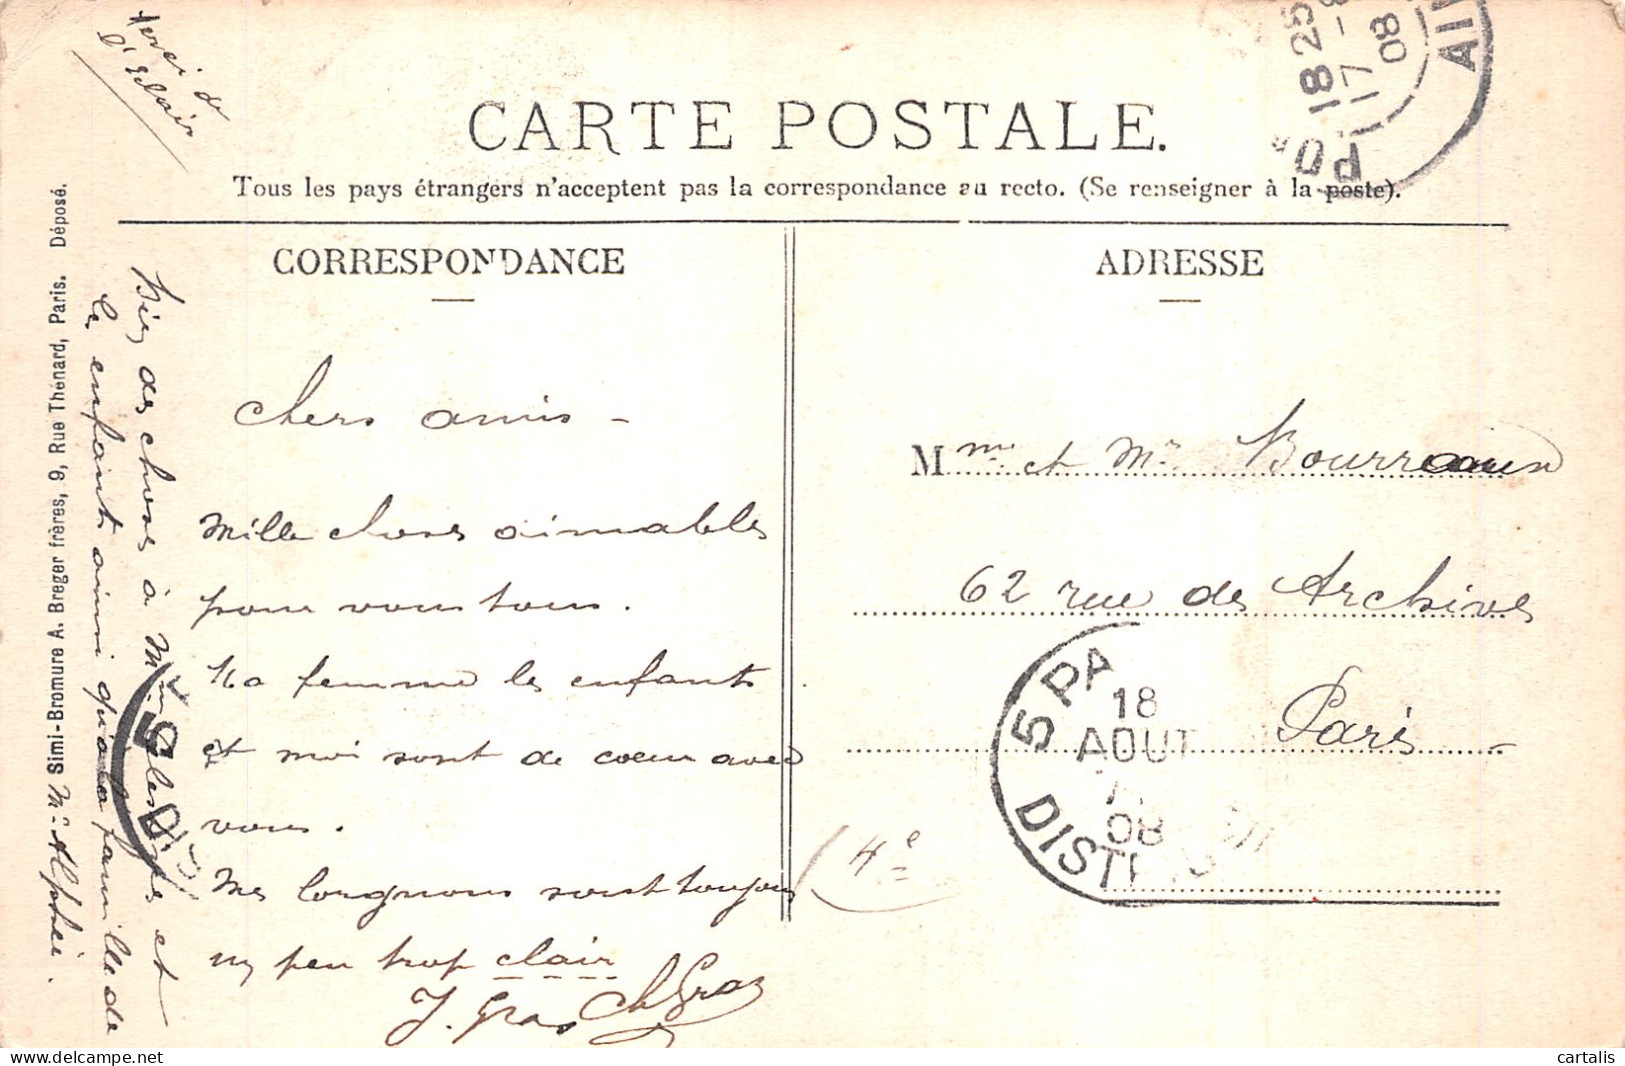 Merci de
l'Eclair
CARTE POSTALE.
Tous les pays étrangers n'acceptent pas la correspondance au recto. (Se renseigner à la poste).
18 25
17 -8
08
PO
AI
CORRESPONDANCE
ADRESSE
Chers amis -
Mille choses aimables
pour vous tous.
Ma femme les enfants
et moi sont de coeur avec
vous.
Mes lorgnons sont toujours
un peu trop clair
J. Gras Ch Gras
Bien des choses à Mme et
les enfants ainsi qu'a la famille de
Mr Alphée.
Simi-Bromure A. Breger frères, 9, Rue Thénard, Paris. Déposé.
Mme et Mr
62 rue des Archives
Paris -
4e
5 PA
18
AOUT
08
DISTRI